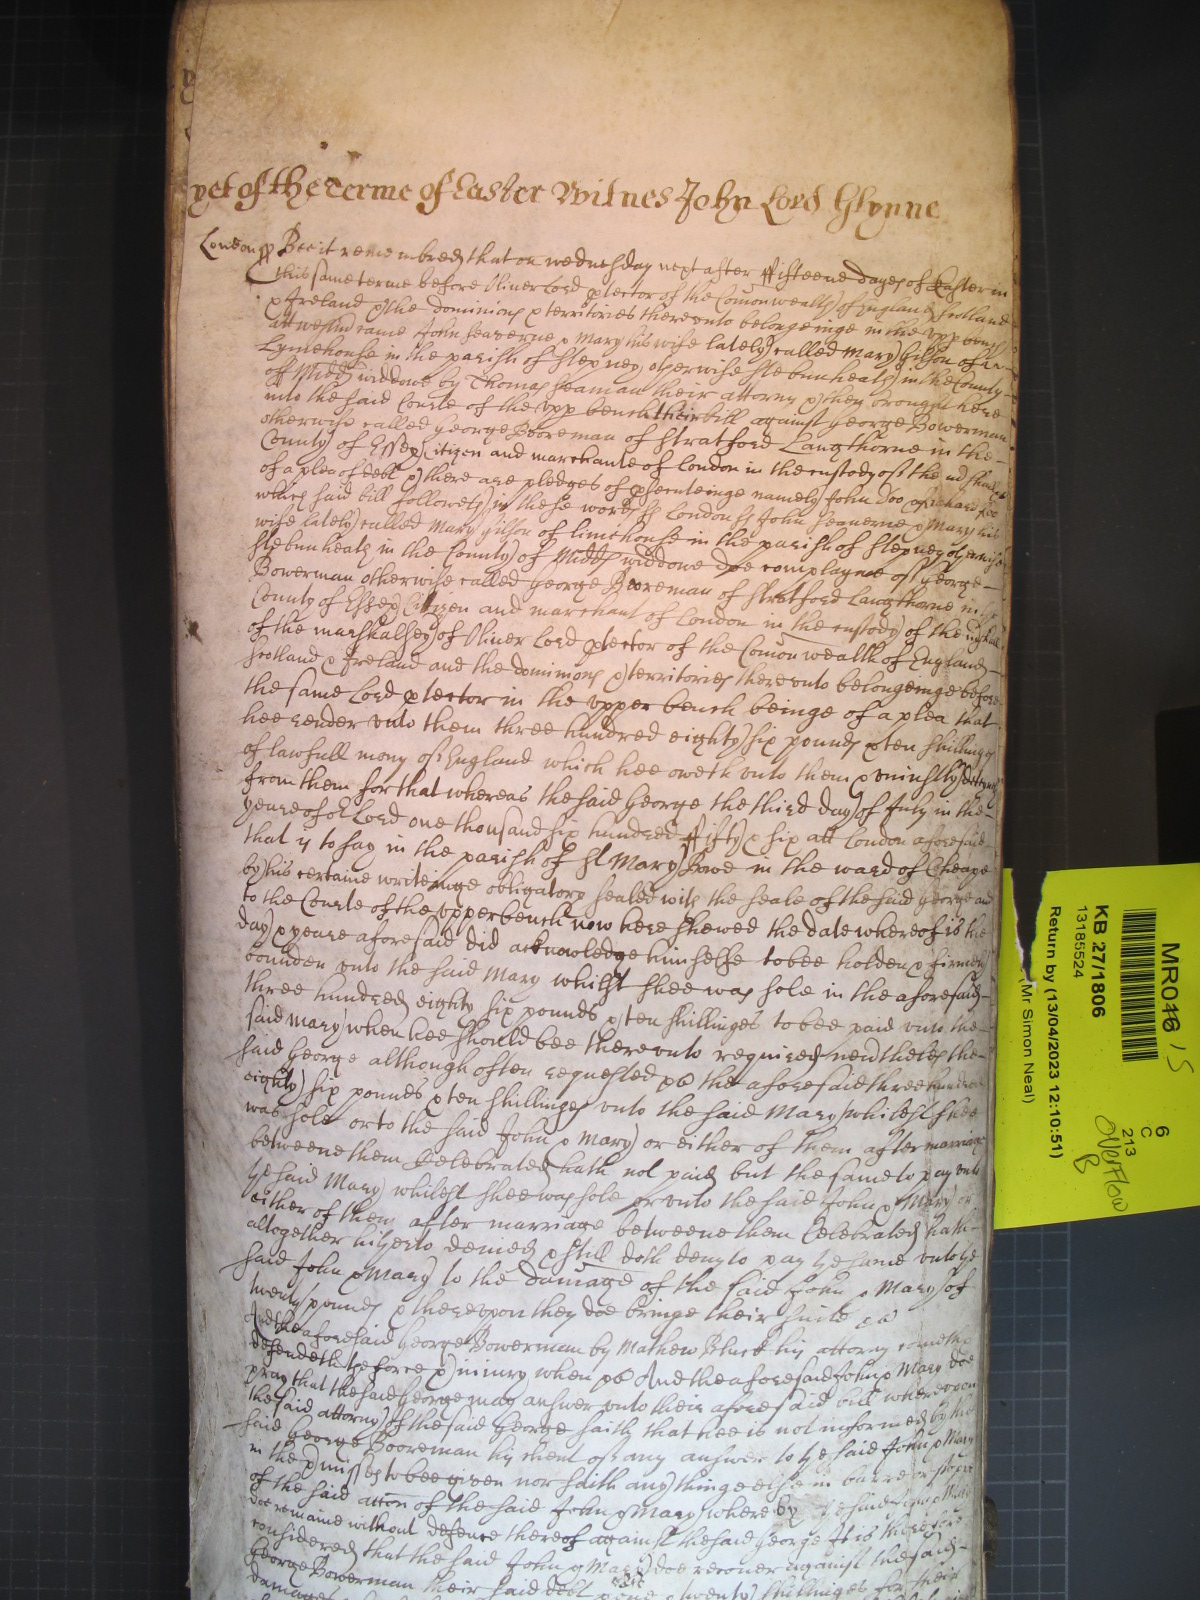 yet of the terme of Easter Witnes John Lord Glynne
London ss Bee it remembred that on wednesday next after ffifteene dayes of Easter in
this same terme before Oliver Lord ptector of the Comonwealth of England Scotland
& Ireland & the dominions & territories thereunto belongeinge in the upp bench
att westm came John Seaverne & Mary his wife lately called Mary Gilson of
Lymehouse in the parish of Stepney otherwise Stebunheath in the County
of Midds widdowe by Thomas Seaman their attorny & they brought here
into the said Courte of the upp bench their bill against George Bowerman
otherwise called George Booreman of Stratford Langthorne in the
County of Essex Citizen and marchante of London in the custody of the
of a plea of debt & there are pledges of psecuteinge namely John Doo & Richard Roe
which said bill followeth in these words ss London ss John Seaverne & Mary his
wife lately called Mary Gilson of Limehouse in the parish of Stepney otherwise
Stebunheath in the County of Midds widdowe doe complayne of George
Bowerman otherwise called George Booreman of Stratford Langthorne in the
County of Essex Citizen and marchant of London in the custody of the
of the marshalsey of Oliver Lord ptector of the Comonwealth of England
Scotland & Ireland and the dominions & territories thereunto belongeinge before
the same Lord ptector in the upper bench beinge of a plea that
hee render unto them three hundred eighty six pounds & ten shillings
of lawfull mony of England which hee oweth unto them & uniustly
from them for that whereas the said George the third day of July in the
yeare of or Lord one thousand six hundred ffifty & six att London aforesaid
that is to say in the parish of St Mary Bowe in the ward of Cheape
by his certaine writeinge obligatory sealed with the seale of the said George and
to the Courte of the upper bench now here shewed the date whereof is the
day & yeare aforesaid did acknowledge himselfe to bee holden & firmely
bounden unto the said Mary whilst shee was sole in the aforesaid
three hundred eighty six pounds & ten shillinges to bee paid unto the
said Mary when hee should bee thereunto required nevertheles the
said George although often requested &c the aforesaid three hundred
eighty six pounds & ten shillinges unto the said Mary whilest shee
was sole or to the said John & Mary or either of them after marriage
betweene them Celebrated hath not paid but the same to pay unto
ye said Mary whilest shee was sole or unto the said John & Mary or
either of them after marriage betweene them Celebrated hath
altogether hitherto denied & still doth deny to pay ye same unto ye
said John & Mary to the damage of the said John & Mary of
twenty pounds & thereupon they doe bringe their suite &c
And the aforesaid George Bowerman by Mathew Bluck his attorny cometh
defendeth ye force & iniury when &c And the aforesaid John & Mary doe
pray that the said George may answer unto their aforesaid bill whereupon
the said attorny of the said George saith that hee is not informed by the
said George Booreman his client of any answer to ye said John & Mary
in the pmisses to bee given nor saith any thinge else in barre or
of the said accon of the said John & Mary whereby ye said John & Mary
doe remaine without defence thereof against the said George It is therefore
considered that the said John & Mary doe recover against the said
George Bowerman their said debt twenty shillinges for their
damages
MR046 / S
KB 27/1806
13185524
Return by (13/04/2023 12:10:51)
(Mr Simon Neal)
6
C
213
Overflow
B